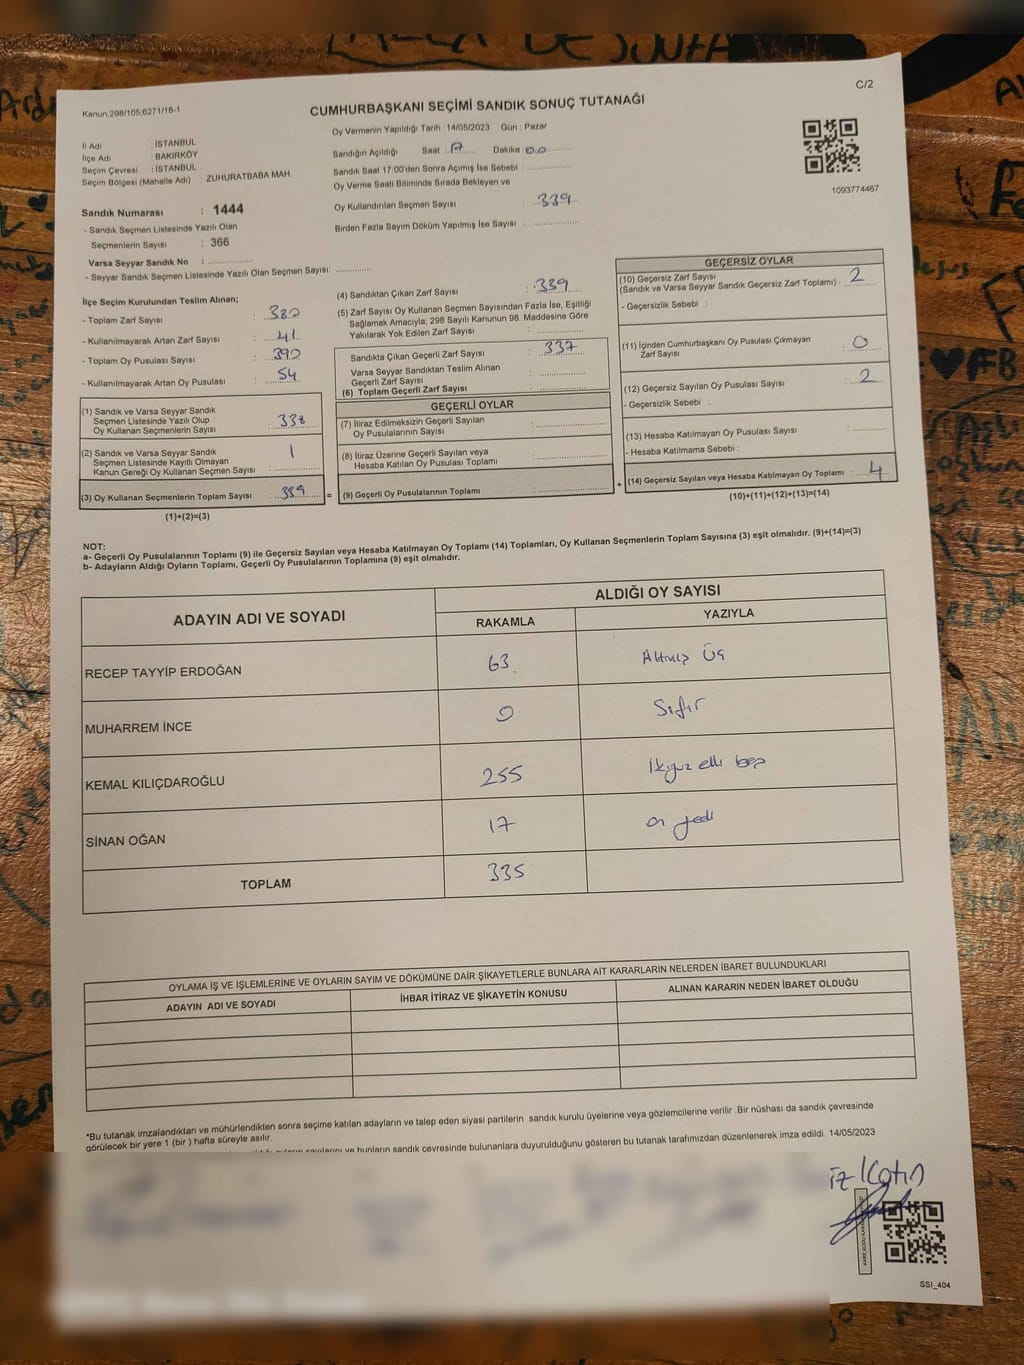 C/2
Kanun;298/105;6271/18-1
CUMHURBAŞKANI SEÇİMİ SANDIK SONUÇ TUTANAĞI
İl Adı : İSTANBUL
İlçe Adı : BAKIRKÖY
Seçim Çevresi : İSTANBUL
Seçim Bölgesi (Mahalle Adı) : ZUHURATBABA MAH.
Sandık Numarası : 1444
- Sandık Seçmen Listesinde Yazılı Olan
Seçmenlerin Sayısı : 366
Varsa Seyyar Sandık No :
- Seyyar Sandık Seçmen Listesinde Yazılı Olan Seçmen Sayısı:
Oy Vermenin Yapıldığı Tarih : 14/05/2023 Gün : Pazar
Sandığın Açıldığı Saat : 17 Dakika : 00
Sandık Saat 17:00'den Sonra Açımış İse Sebebi :
Oy Verme Saati Bitiminde Sırada Bekleyen ve
Oy Kullandırılan Seçmen Sayısı : 339
Birden Fazla Sayım Döküm Yapılmış İse Sayısı :
1093774467
İlçe Seçim Kurulundan Teslim Alınan;
- Toplam Zarf Sayısı : 380
- Kullanılmayarak Artan Zarf Sayısı : 41
- Toplam Oy Pusulası Sayısı : 390
- Kullanılmayarak Artan Oy Pusulası : 54
(1) Sandık ve Varsa Seyyar Sandık
Seçmen Listesinde Yazılı Olup
Oy Kullanan Seçmenlerin Sayısı : 338
(2) Sandık ve Varsa Seyyar Sandık
Seçmen Listesinde Kayıtlı Olmayan
Kanun Gereği Oy Kullanan Seçmen Sayısı : 1
(3) Oy Kullanan Seçmenlerin Toplam Sayısı : 339
(1)+(2)=(3)
(4) Sandıktan Çıkan Zarf Sayısı : 339
(5) Zarf Sayısı Oy Kullanan Seçmen Sayısından Fazla İse, Eşitliği
Sağlamak Amacıyla; 298 Sayılı Kanunun 98. Maddesine Göre
Yakılarak Yok Edilen Zarf Sayısı :
Sandıkta Çıkan Geçerli Zarf Sayısı : 337
Varsa Seyyar Sandıktan Teslim Alınan
Geçerli Zarf Sayısı :
(6) Toplam Geçerli Zarf Sayısı :
GEÇERLİ OYLAR
(7) İtiraz Edilmeksizin Geçerli Sayılan
Oy Pusulalarının Sayısı :
(8) İtiraz Üzerine Geçerli Sayılan veya
Hesaba Katılan Oy Pusulası Toplamı :
= (9) Geçerli Oy Pusulalarının Toplamı : +
GEÇERSİZ OYLAR
(10) Geçersiz Zarf Sayısı
(Sandık ve Varsa Seyyar Sandık Geçersiz Zarf Toplamı) : 2
- Geçersizlik Sebebi :
(11) İçinden Cumhurbaşkanı Oy Pusulası Çıkmayan
Zarf Sayısı : 0
(12) Geçersiz Sayılan Oy Pusulası Sayısı : 2
- Geçersizlik Sebebi :
(13) Hesaba Katılmayan Oy Pusulası Sayısı :
- Hesaba Katılmama Sebebi :
(14) Geçersiz Sayılan veya Hesaba Katılmayan Oy Toplamı : 4
(10)+(11)+(12)+(13)=(14)
NOT:
a- Geçerli Oy Pusulalarının Toplamı (9) ile Geçersiz Sayılan veya Hesaba Katılmayan Oy Toplamı (14) Toplamları, Oy Kullanan Seçmenlerin Toplam Sayısına (3) eşit olmalıdır. (9)+(14)=(3)
b- Adayların Aldığı Oyların Toplamı, Geçerli Oy Pusulalarının Toplamına (9) eşit olmalıdır.
ADAYIN ADI VE SOYADI ALDIĞI OY SAYISI
RAKAMLA YAZIYLA
RECEP TAYYİP ERDOĞAN 63 Altmış Üç
MUHARREM İNCE 0 Sıfır
KEMAL KILIÇDAROĞLU 255 İkiyüz elli beş
SİNAN OĞAN 17 on yedi
TOPLAM 335
OYLAMA İŞ VE İŞLEMLERİNE VE OYLARIN SAYIM VE DÖKÜMÜNE DAİR ŞİKAYETLERLE BUNLARA AİT KARARLARIN NELERDEN İBARET BULUNDUKLARI
ADAYIN ADI VE SOYADI İHBAR İTİRAZ VE ŞİKAYETİN KONUSU ALINAN KARARIN NEDEN İBARET OLDUĞU
*Bu tutanak imzalandıktan ve mühürlendikten sonra seçime katılan adayların ve talep eden siyasi partilerin sandık kurulu üyelerine veya gözlemcilerine verilir .Bir nüshası da sandık çevresinde
görülecek bir yere 1 (bir ) hafta süreyle asılır.
sandık çevresinde bulunanlara duyurulduğunu gösteren bu tutanak tarafımızdan düzenlenerek imza edildi. 14/05/2023
SSI_404